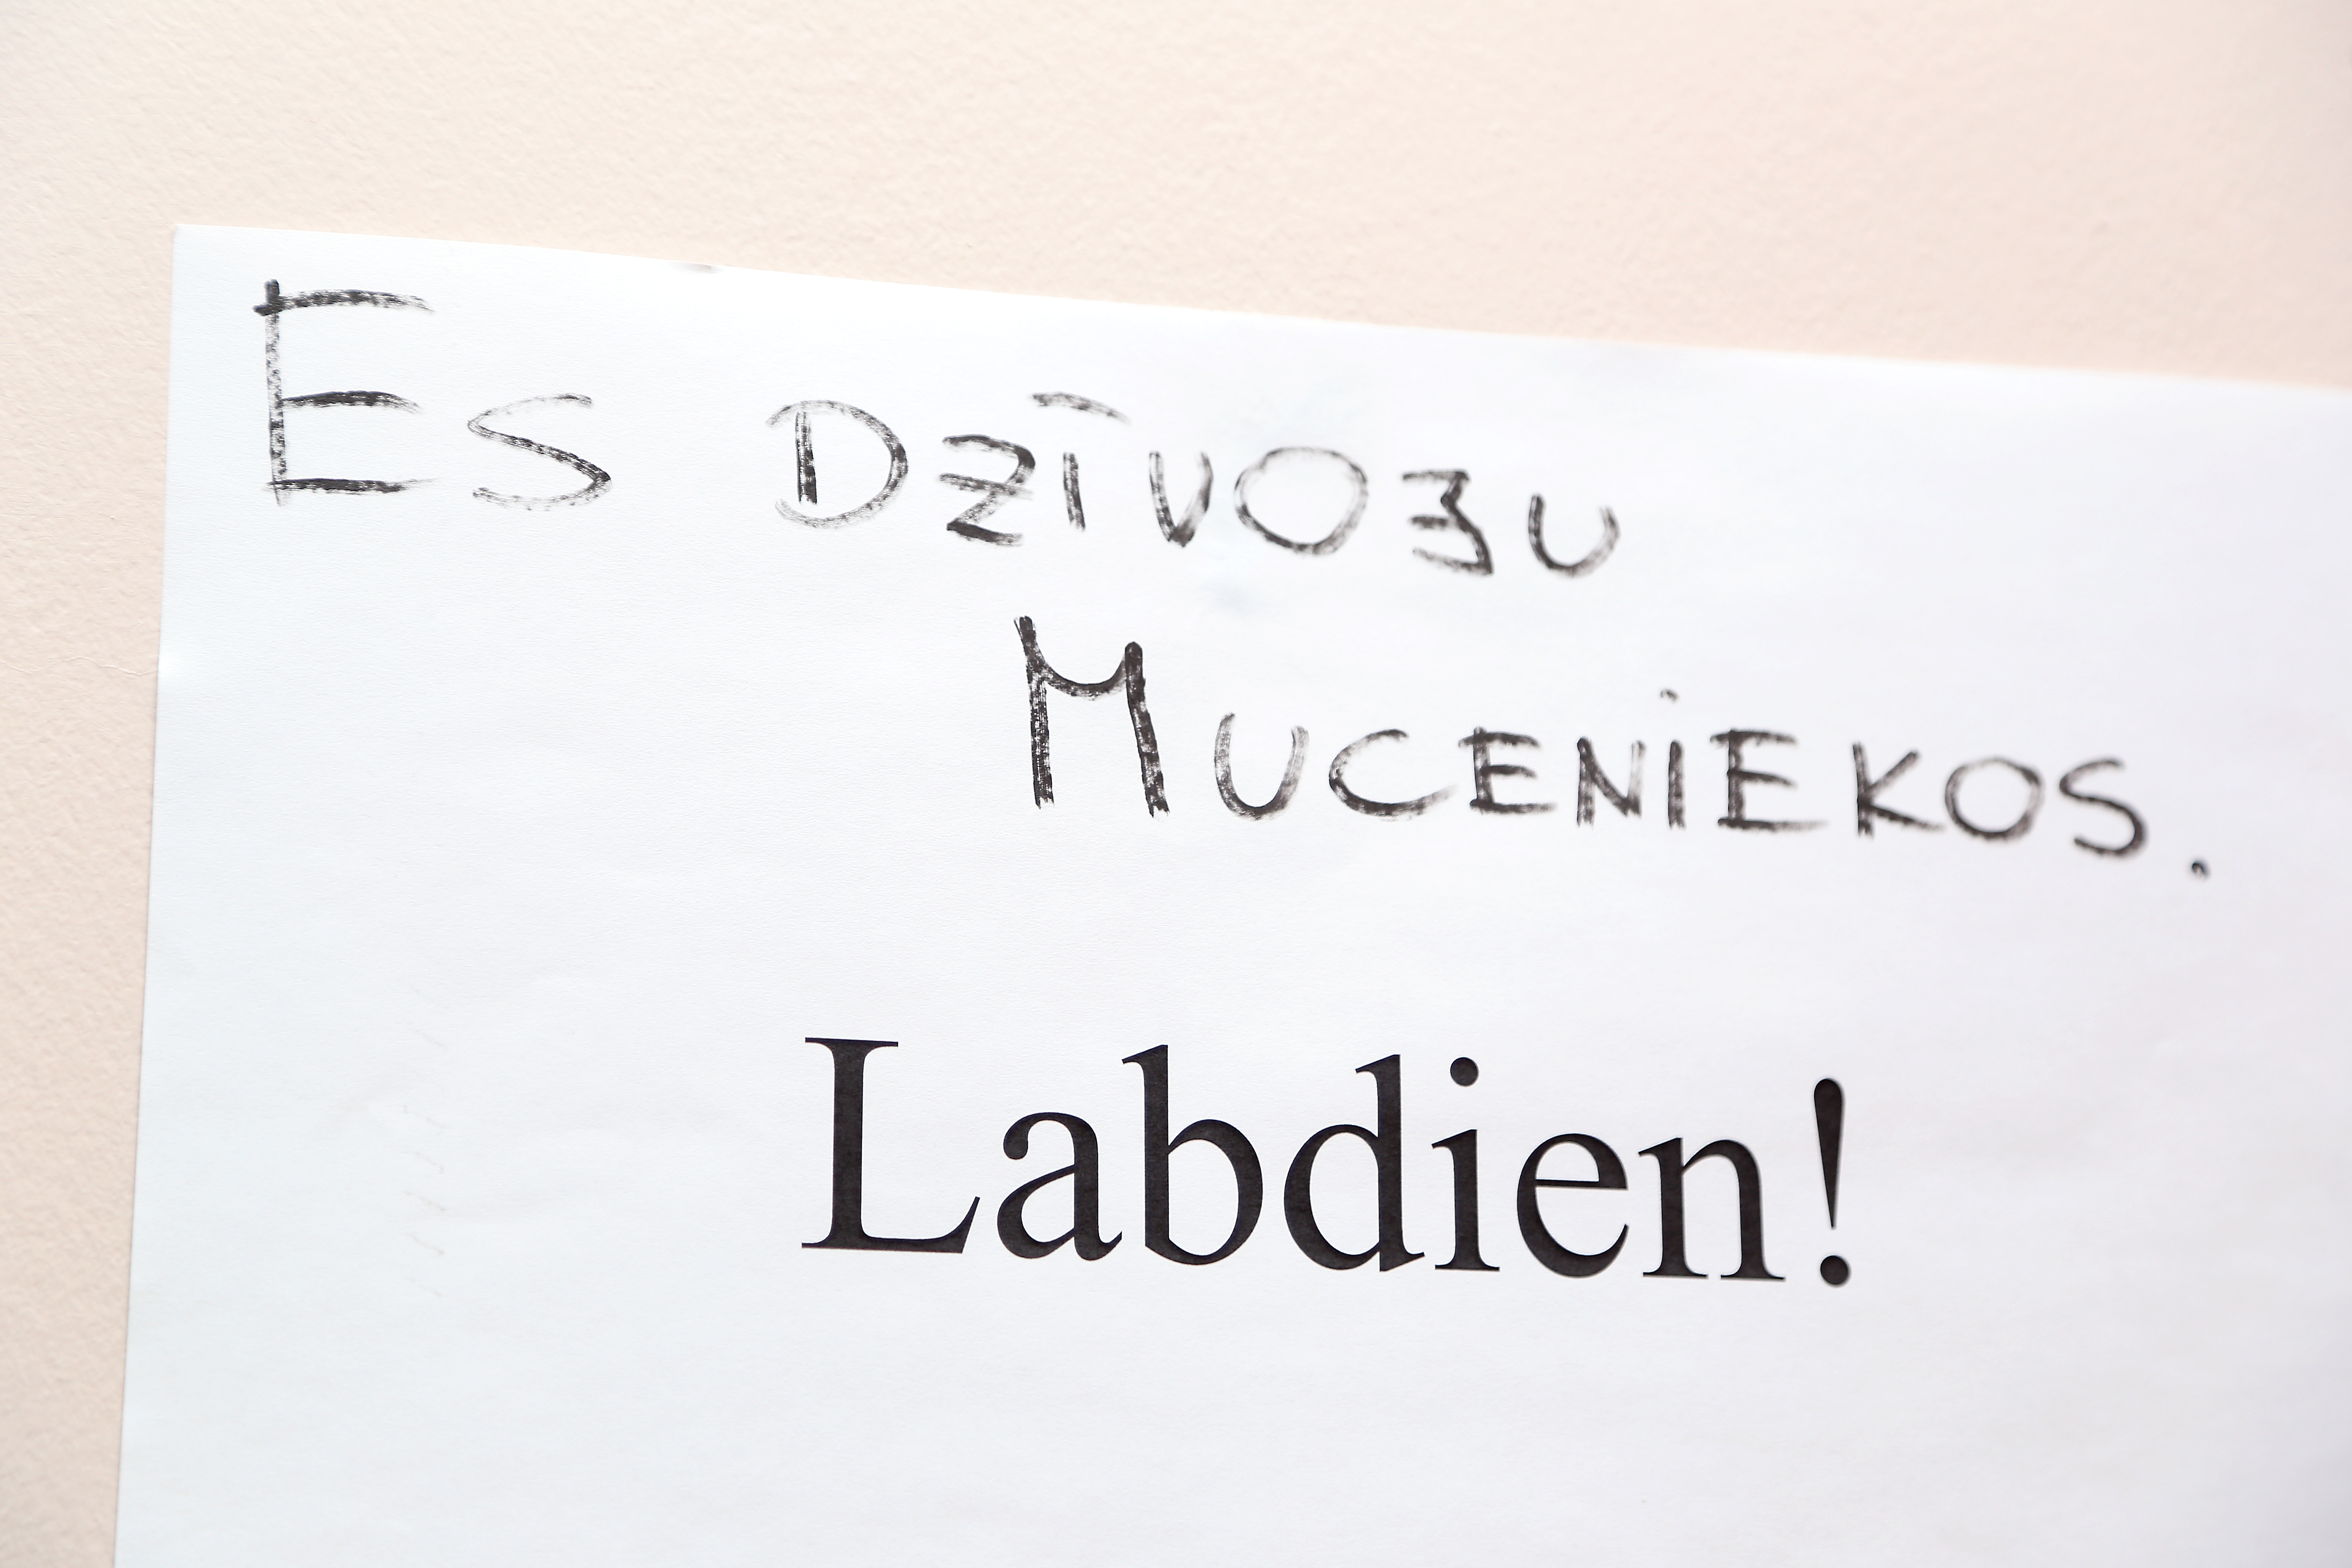 ES DZĪVO3U
MUCENIEKOS.
Labdien!